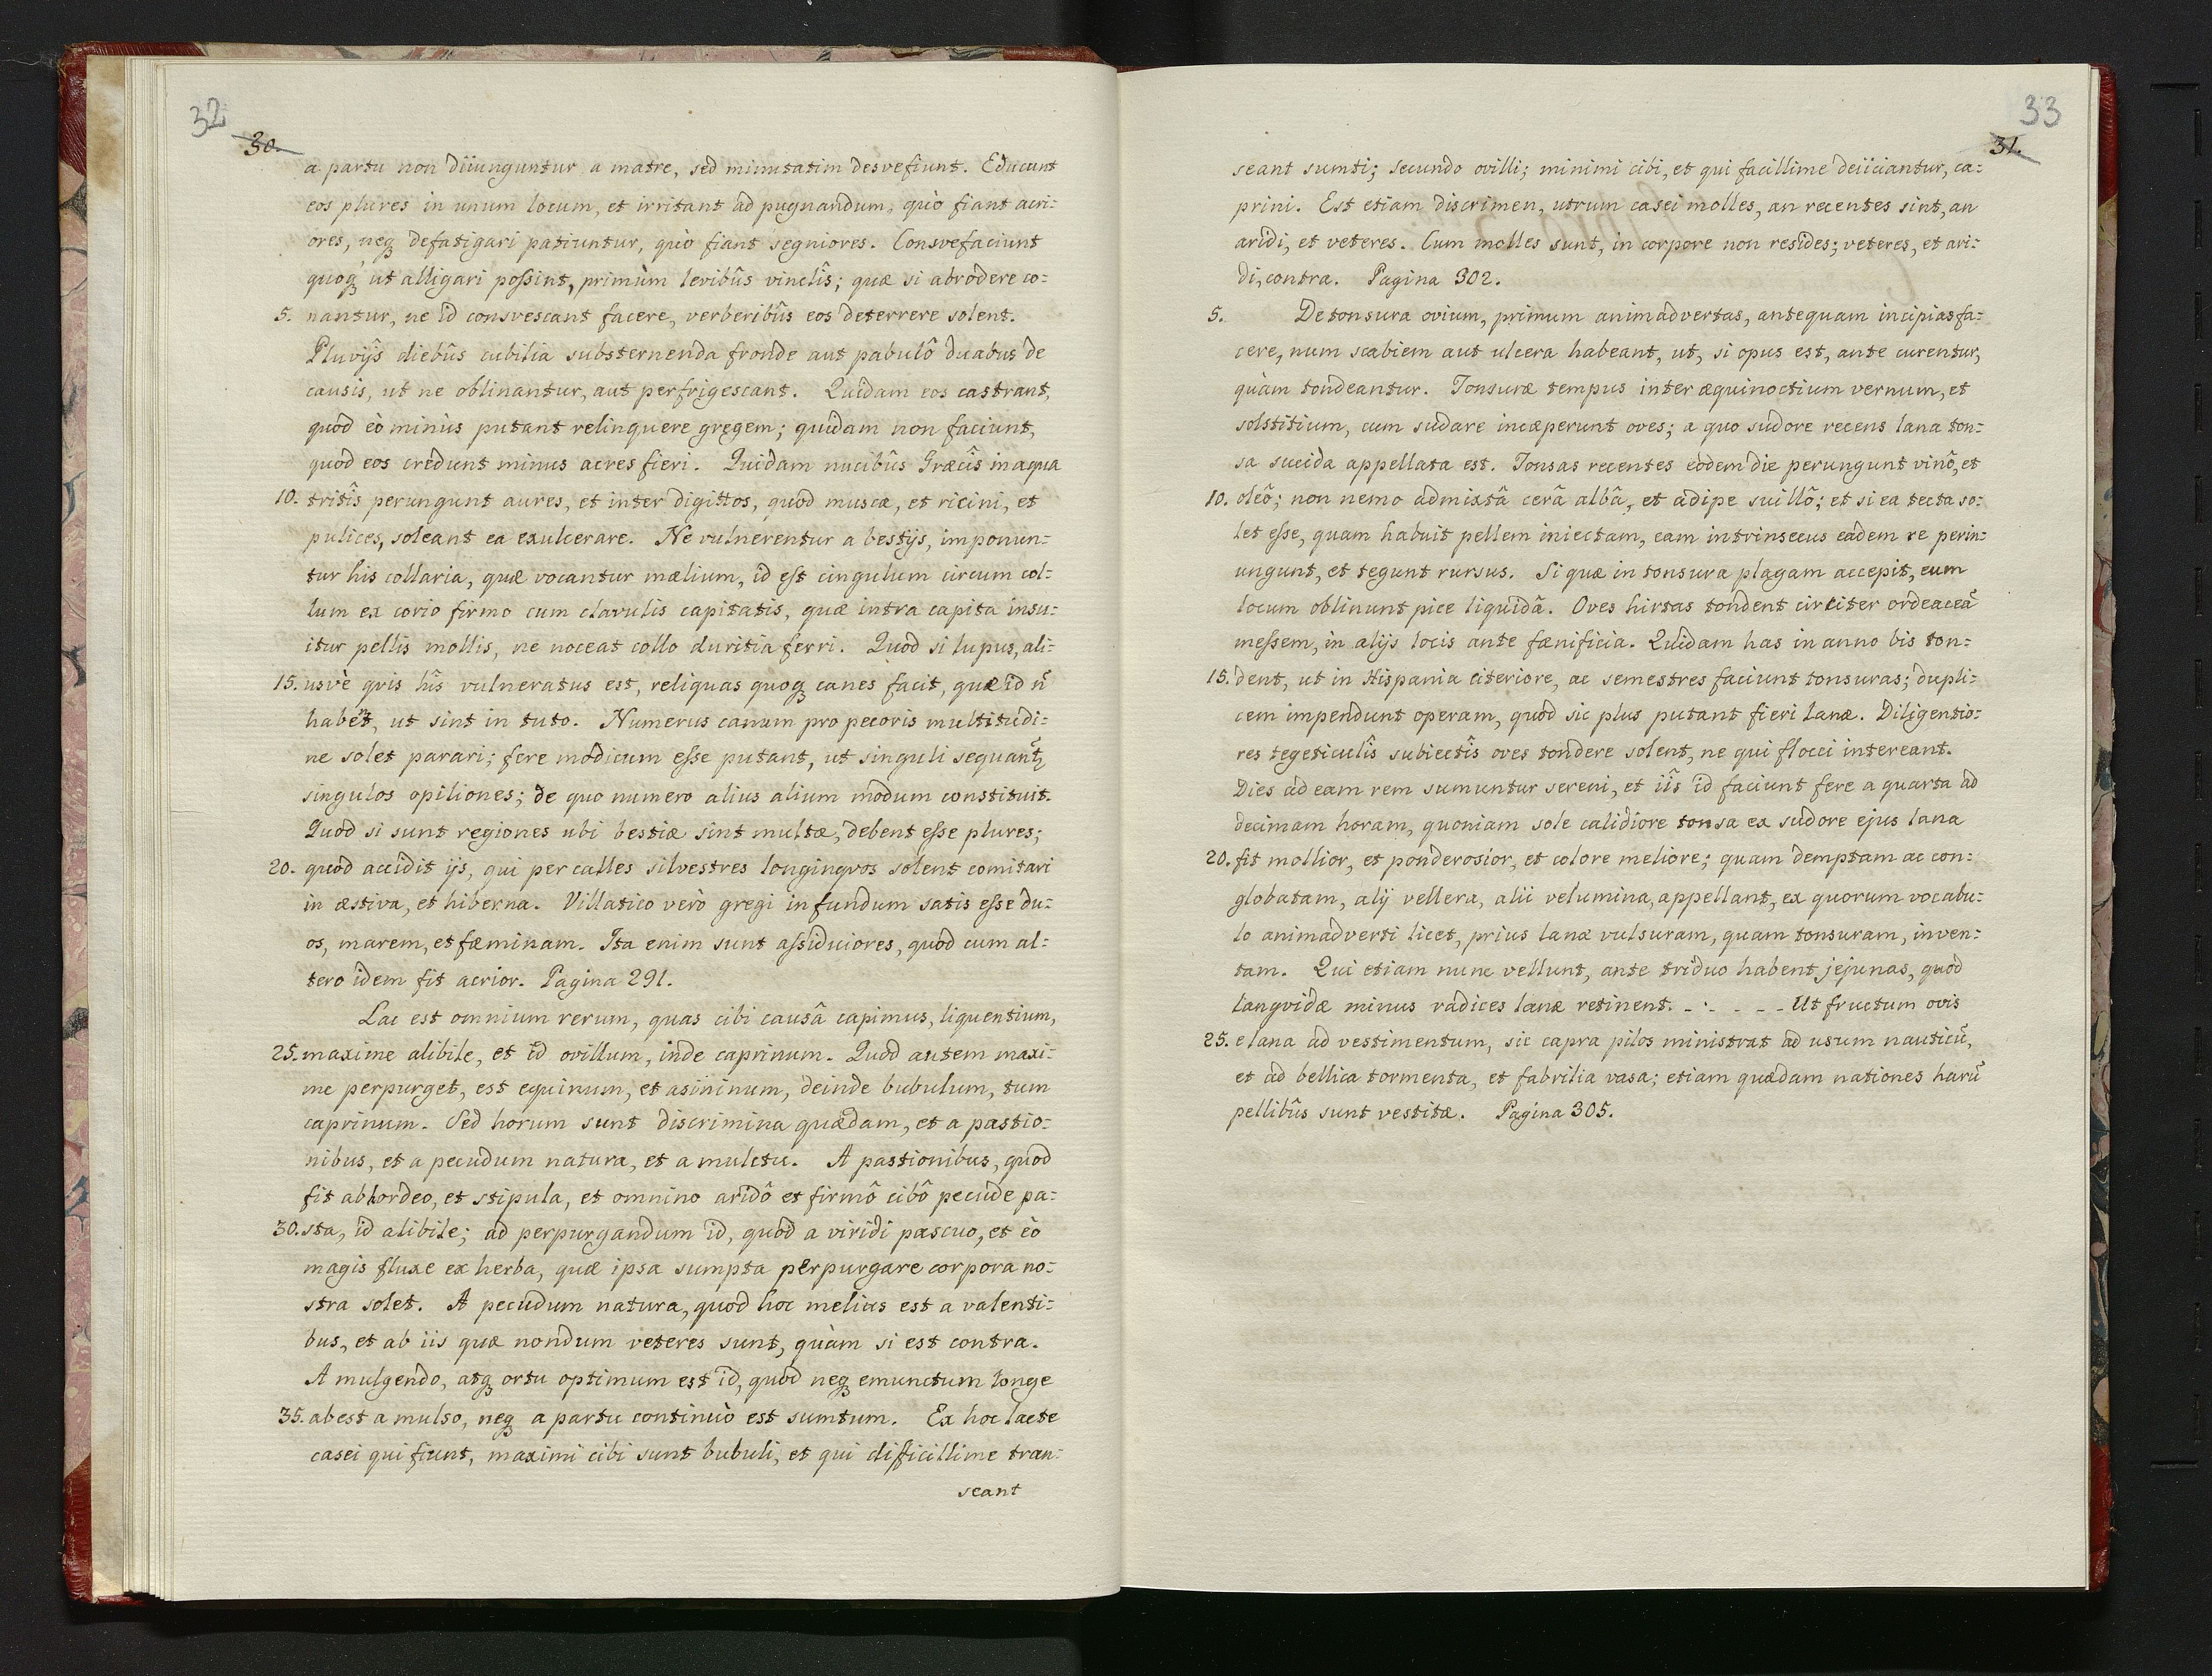 32
30.
a partu non diiunguntur a matre, sed minutatim desvefiunt. Educunt
eos plures in unum locum, et irritant ad pugnandum, quò fiant acri=
ores, neq₃ defatigari patiuntur, quò fiant segniores. Consvefaciunt
quoq₃ ut alligari possint, primùm levibûs vinclîs; quæ si abrodere co=
5. nantur, ne id consvescant facere, verberibûs eos deterrere solent.
Pluvijs diebûs cubilia substernenda fronde aut pabulô duabus de
causis, ut ne oblinantur, aut perfrigescant. Quidam eos castrant,
quod eò minùs putant relinquere gregem; quidam non faciunt,
quod eos credunt minus acres fieri. Quidam nucibûs Græcîs in aqua
10. tritîs perungunt aures, et inter digittos, quod muscæ, et ricini, et
pulices, soleant ea exulcerare. Ne vulnerentur a bestijs, imponun=
tur his collaria, quæ vocantur mælium, id est cingulum circum col=
lum ex corio firmo cum clavulis capitatis, quæ intra capita insu=
itur pellis mollis, ne noceat collo duritia ferri. Quod si lupus, ali=
15. usvè qvis hîs vulneratus est, reliquas quoq₃ canes facit, quæ id n̄
habent, ut sint in tuto. Numerus canum pro pecoris multitudi=
ne solet parari; fere modicum esse putant, ut singuli sequant᷑
singulos opiliones; de quo numero alius alium modum constituit.
Quod si sunt regiones ubi bestiæ sint multæ, debent esse plures;
20. quod accidit ijs, qui per calles silvestres longinqvos solent comitari
in æstiva, et hiberna. Villatico verò gregi in fundum satis esse du=
os, marem, et fæminam. Ita enim sunt assiduiores, quod cum al=
tero idem fit acrior. Pagina 291.
Lac est omnium rerum, quas cibi causâ capimus, liquentium,
25. maxime alibile, et id ovillum, inde caprinum. Quod autem maxi=
me perpurget, est equinum, et asininum, deinde bubulum, tum
caprinum. Sed horum sunt discrimina quædam, et a pastio=
nibus, et a pecudum natura, et a mulctu. A pastionibus, quod
fit ab hordeo, et stipula, et omnino aridô et firmô cibô pecude pa=
30. sta, id alibile; ad perpurgandum id, quod a viridi pascuo, et èo
magis fluxe ex herba, quæ ipsa sumpta perpurgare corpora no=
stra solet. A pecudum natura, quod hoc melius est a valenti=
bus, et ab iis quæ nondum veteres sunt, quàm si est contra.
A mulgendo, atq₃ ortu optimum est id, quod neq₃ emunctum longe
35. abest a mulso, neq₃ a partu continuò est sumtum. Ex hoc lacte
casei qui fiunt, maximi cibi sunt bubuli, et qui difficillime tran=
seant
33
31.
seant sumti; secundo ovilli; minimi cibi, et qui facillime deiiciantur, ca=
prini. Est etiam discrimen, utrum casei molles, an recentes sint, an
aridi, et veteres. Cum molles sunt, in corpore non resides; veteres, et ari=
di, contra. Pagina 302.
5. De tonsura ovium, primum animadvertas, antequam incipias fa=
cere, num scabiem aut ulcera habeant, ut, si opus est, ante curentur,
quàm tondeantur. Tonsuræ tempus inter æquinoctium vernum, et
solstitium, cum sudare incæperunt oves; a quo sudore recens lana ton=
sa sucida appellata est. Tonsas recentes eodem die perungunt vinô, et
10. oleô; non nemo admixtâ cerâ albâ, et adipe suillô; et si ea tecta so=
let esse, quam habuit pellem iniectam, eam intrinsecus eadem re perin=
ungunt, et tegunt rursus. Si quæ in tonsura plagam accepit, eum
locum oblinunt pice liquidâ. Oves hirtas tondent circiter ordeaceā
messem, in alijs locis ante fænificia. Quidam has in anno bis ton=
15. dent, ut in Hispania citeriore, ac semestres faciunt tonsuras; dupli=
cem impendunt operam, quod sic plus putant fieri lanæ. Diligentio=
res tegeticulîs subiectîs oves tondere solent, ne qui flocci intereant.
Dies ad eam rem sumuntur sereni, et iîs id faciunt fere a quarta ad
decimam horam, quoniam sole calidiore tonsa ex sudore ejus lana
20. fit mollior, et ponderosior, et colore meliore; quam demptam ac con=
globatam, alij vellera, alii velumina, appellant, ex quorum vocabu=
lo animadverti licet, prius lanæ vulsuram, quam tonsuram, inven=
tam. Qui etiam nunc vellunt, ante triduo habent jejunas, quod
langvidæ minus radices lanæ retinent. - · - - - - Ut fructum ovis
25. e lana ad vestimentum, sic capra pilos ministrat ad usum nauticū,
et ad bellica tormenta, et fabrilia vasa; etiam quædam nationes harū
pellibûs sunt vestitæ. Pagina 305.